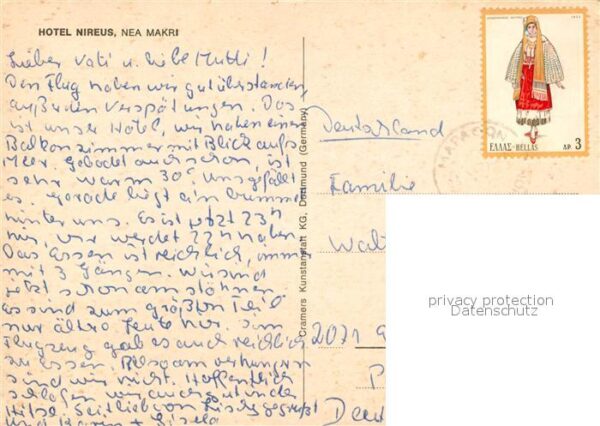 HOTEL NIREUS, NEA MAKRI
Lieber Vati u. liebe Mutti!
Den Flug haben wir gut überstanden,
außer den Verspätungen. Das
ist unser Hotel, wir haben einen
Balkonzimmer mit Blick aufs
Meer. Gebadet auch schon, ist
sehr warm 30° Uns gefällt
es. Gerade liegt ein Bummel
hinter uns. Es ist jetzt 23h
hier, ihr werdet 22h haben.
Das Essen ist reichlich, immer
mit 3 Gängen. Wir sind
jetzt schon am stöhnen.
Es sind zum größten Teil
nur ältere Leute hier. Im
Flugzeug gab es auch reichlich
zu essen. Also am verhungern
sind wir nicht. Hoffentlich
schlafen wir auch gut in der
Hitze. Seit lieb von
und
Cramers Kunstanstalt KG, Dortmund (Germany)
1972
ΕΛΛΑΣ-HELLAS ΔΡ. 3
Deutschland
Familie
2071
privacy protection
Datenschutz